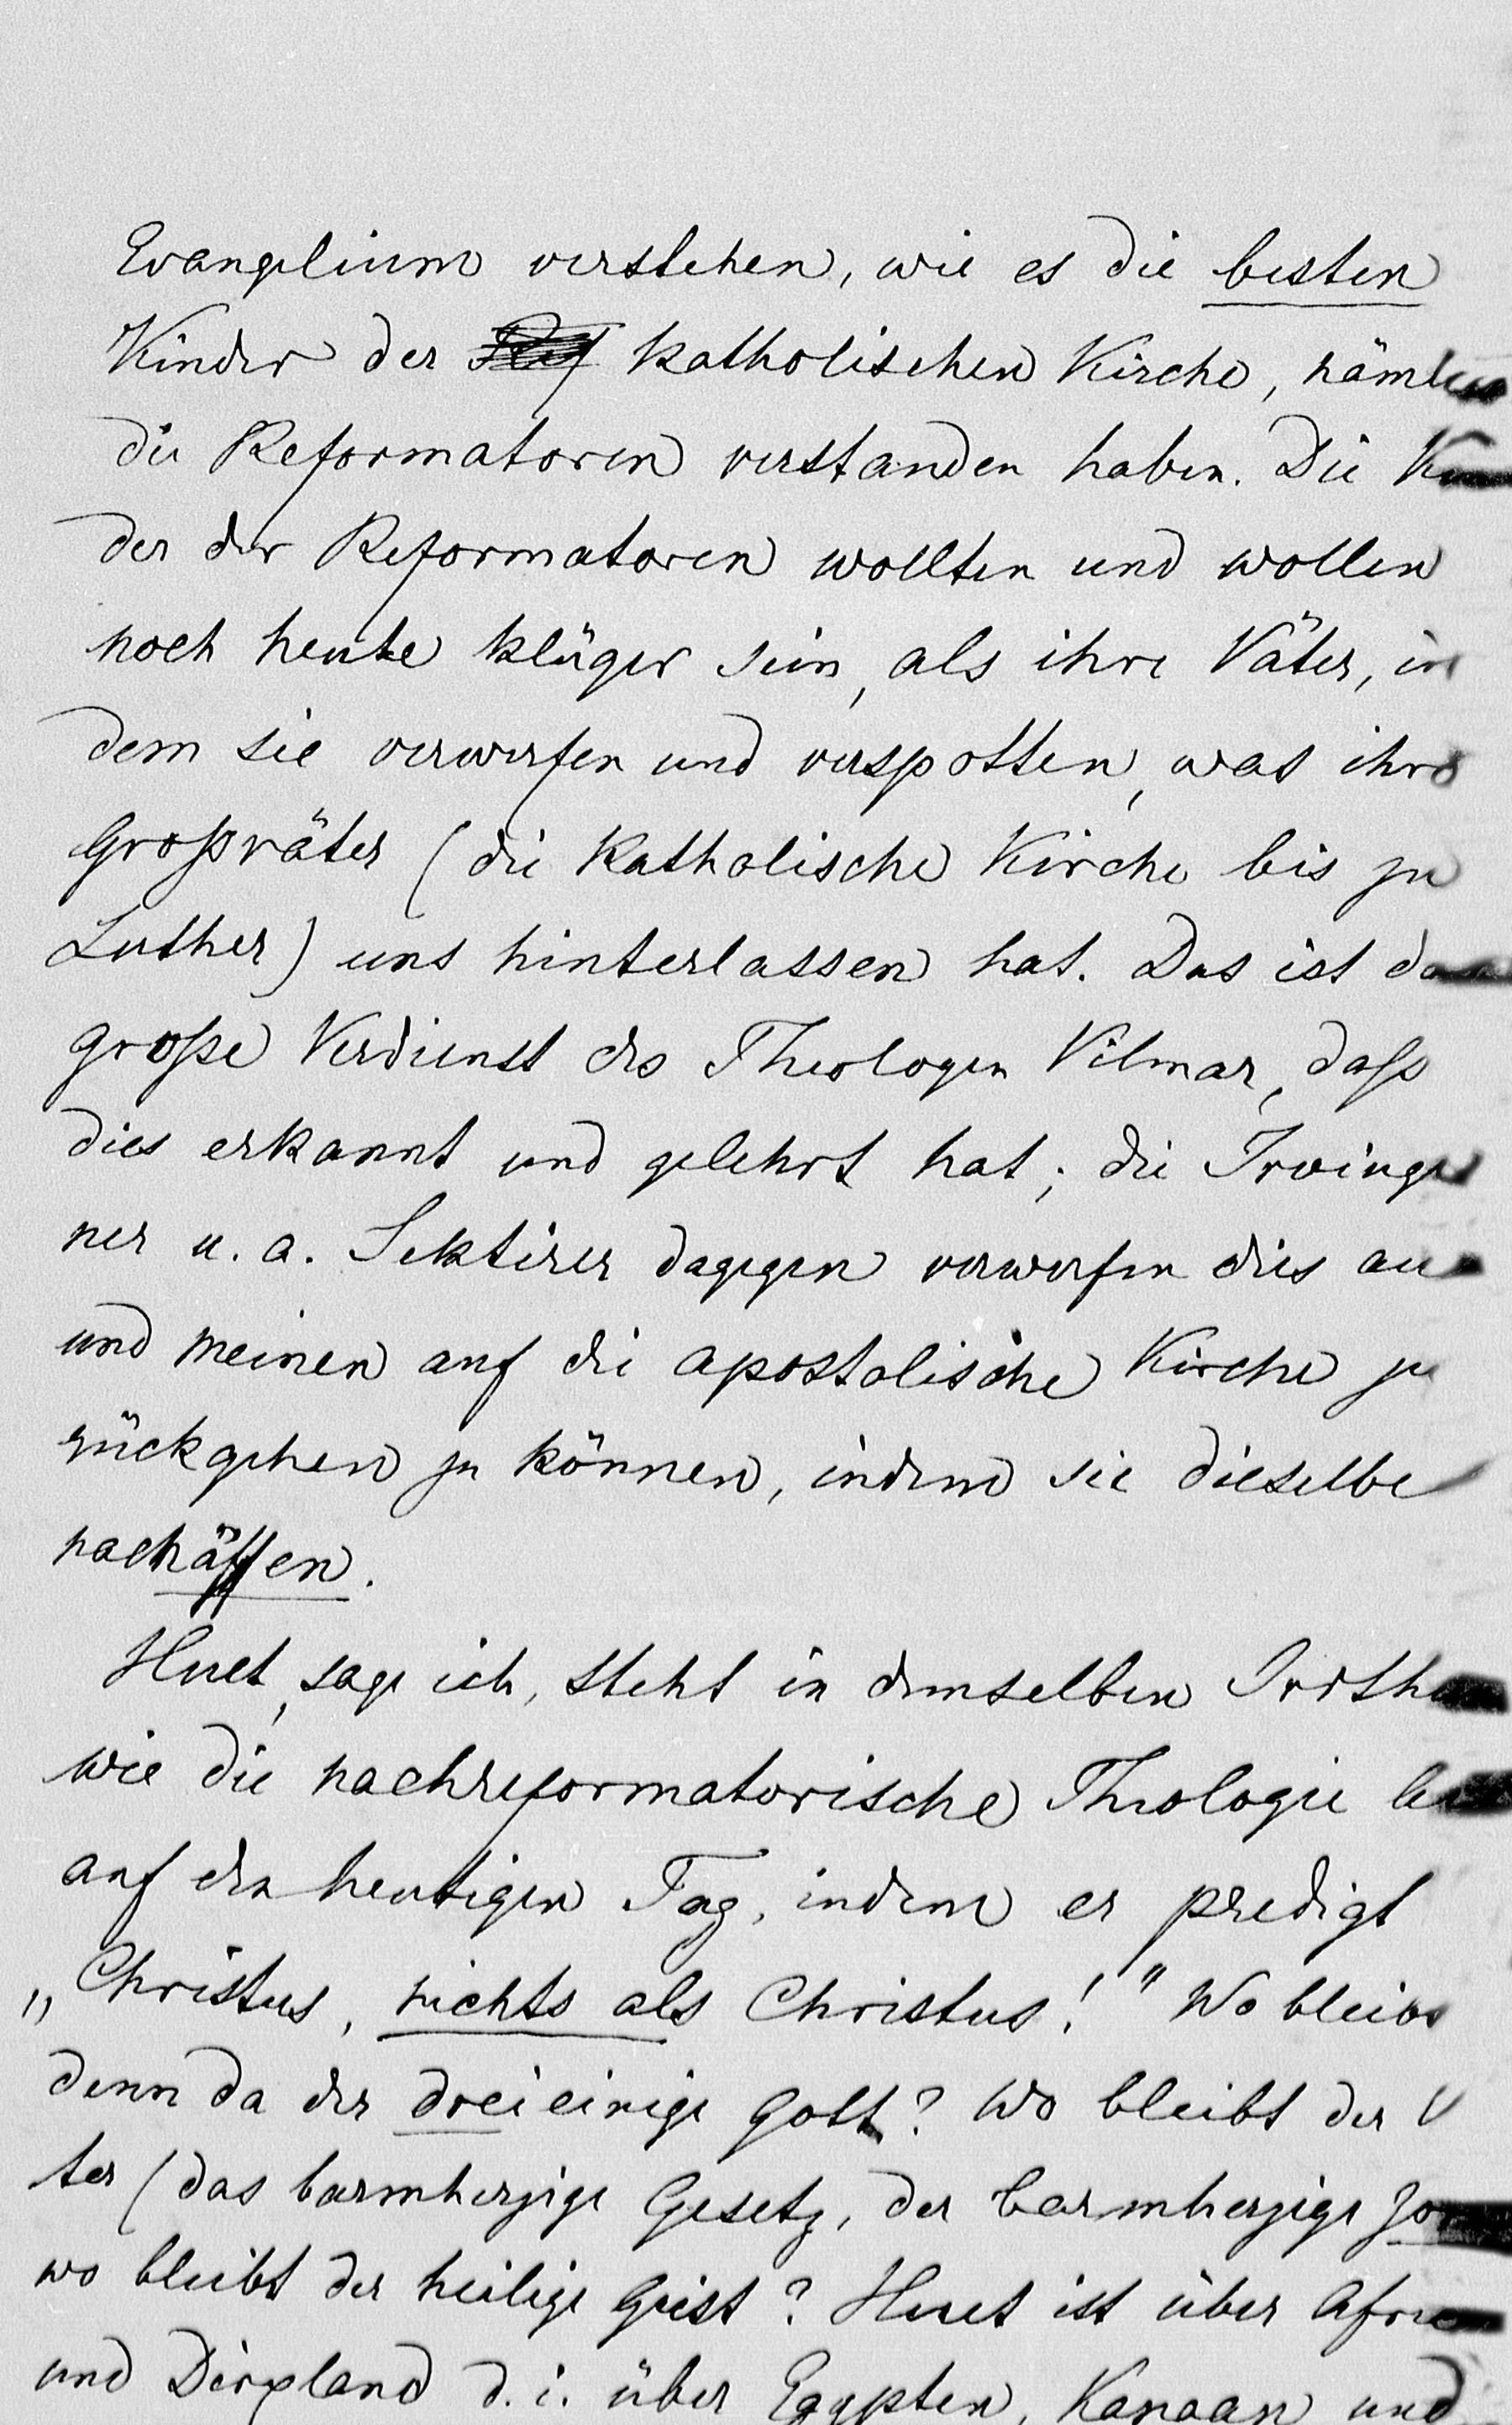 Evangelium verstehen, wie es die besten
Kinder der katholischen Kirche, näml
die Reformatoren verstanden haben. Die Kin
der der Reformatoren wollten und wollen
noch heute klüger sein, als ihre Väter, in
dem sie verwerfen und verspotten, was ihre
Großväter (die katholische Kirche bis zu
Luther) uns hinterlassen hat. Das ist da
große Verdienst des Theologen Vilmar, daß
dies erkannt und gelehrt hat; die Irvingia
ner u. a. Sektirer dagegen verwerfen dies au
und meinen auf die apostolische Kirche zu
rückgehen zu können, indem sie dieselbe
nachäffen.
Huet, sage ich, steht in demselben Irrthu
wie die nachreformatorische Theologie bis
auf den heutigen Tag, indem er predigt
„Christus, nichts als Christus!" Wo bleibt
denn da der dreieinige Gott? Wo bleibt der V
ter (das barmherzige Gesetz, der barmherzige Zor
wo bleibt der heilige Geist? Huet ist über
und d. i. über Egypten, Kanaan und